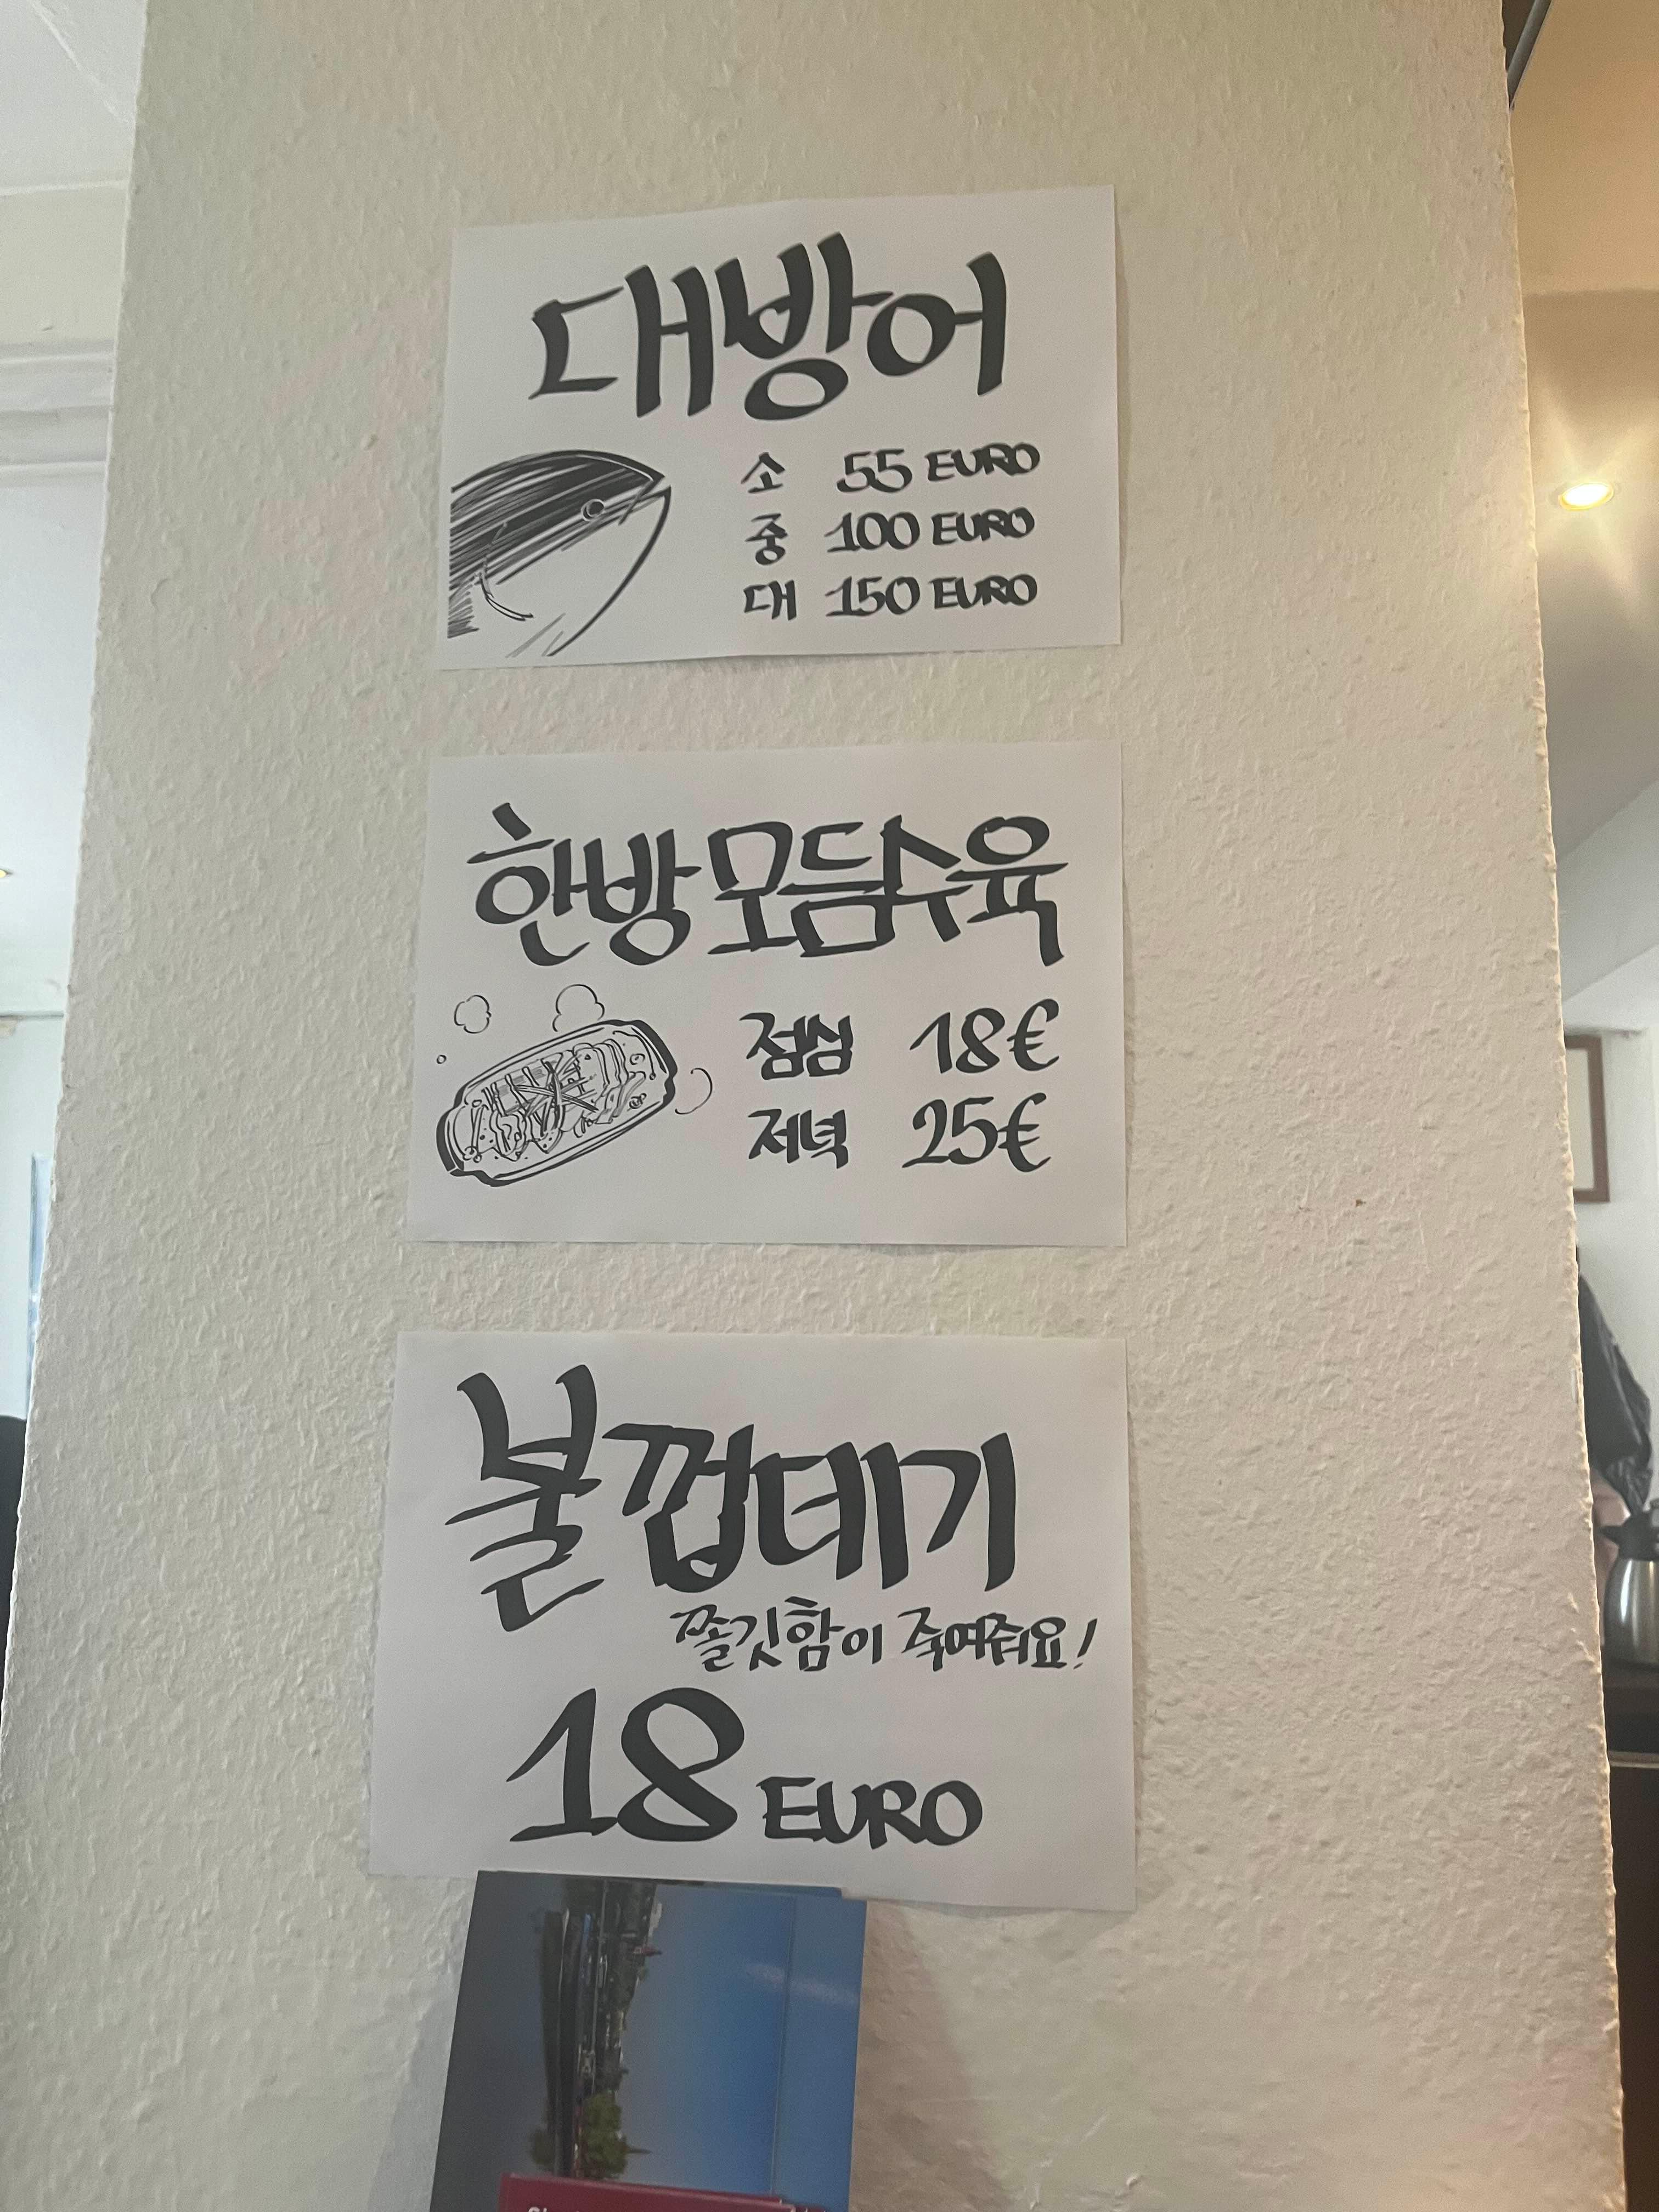 대방어
소 55 EURO
중 100 EURO
대 150 EURO
한방 모듬수육
점심 18€
저녁 25€
불껍데기
쫄깃함이 죽여줘요!
18 EURO